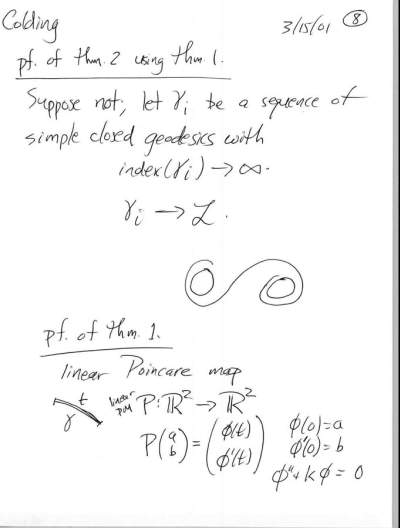 Colding 3/15/01 8
pf. of thm. 2 using thm 1.
Suppose not; let γ_i be a sequence of
simple closed geodesics with
index(γ_i) → ∞.
γ_i → ℒ.
pf. of thm. 1.
linear Poincare map
t
γ
linear
P: ℝ² → ℝ²
P(a b) = (φ(t) φ'(t))
φ(0)=a
φ'(0)=b
φ''+kφ=0